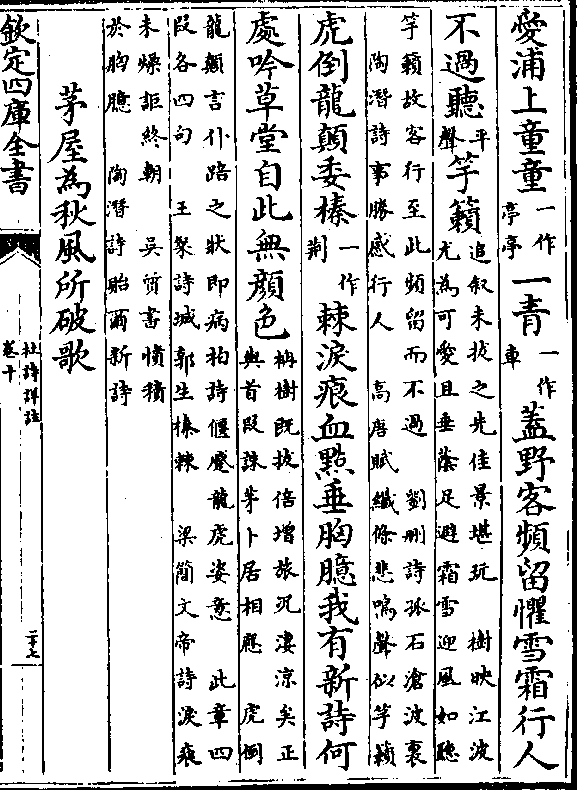 愛浦上童童一作亭亭一青一作車蓋野客頻留懼雪霜行人
不過聽平聲竽籟追叙未拔之先佳景堪玩樹映江波
尤為可愛且垂蔭足避霜雪迎風如聽
竽籟故客行至此頻留而不過 劉删詩孤石滄波裏
陶潛詩事勝感行人 高唐賦纖條悲鳴聲似竽籟
虎倒龍顛委榛一作荆棘淚痕血點垂胸臆我有新詩何
處吟草堂自此無顔色柟樹既拔倍增旅況凄涼矣正
與首段誅茅卜居相應 虎倒
龍顛言仆踣之狀即病柏詩偃蹙龍虎姿意 此章四
段各四句 王粲詩城郭生榛棘 梁簡文帝詩淚痕
未燥詎終朝 吳質書憤積
於胸臆 陶潛詩貽爾新詩
茅屋為秋風所破歌
欽定四庫全書
杜詩詳註
卷十
二十七